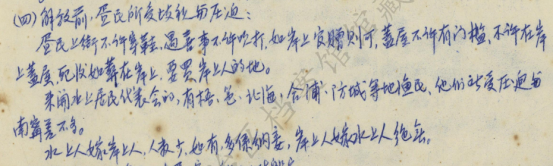 (四)解放前,蛋民所受歧视与压迫:
蛋民上街不许穿鞋,遇喜事不许吹打,如岸上官赠则可,盖屋不许有门槛,不许在岸
上盖屋,死后如葬在岸上,要买岸上人的地。
来开水上居民代表会的,有梧、邕、北海、合浦、防城等地渔民,他们所受压迫与
南宁差不多。
水上人嫁岸上人,人数少,如有,多系纳妾,岸上人嫁水上人绝无。